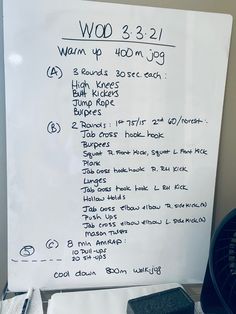 WOD 3.3.21
Warm up 400m jog
(A) 3 Rounds 30 sec each:
High Knees
Butt Kickers
Jump Rope
Burpees
(B) 2 Rounds: 1st 75/15 2nd 60/rorest:
Jab cross hook hook
Burpees
Squat R. Front Kick, Squat L Front Kick
Plank
Jab cross hook hook R. RH Kick
Lunges
Jab cross hook hook L RH Kick
Hollow Holds
Jab cross elbow elbow R. Side Kick (2)
Push Ups
Jab cross elbow elbow L. Side Kick (2)
Mason Twists
(C) 8 min AMRAP:
10 Pull-ups
20 Sit-ups
cool down 800m walk/jog